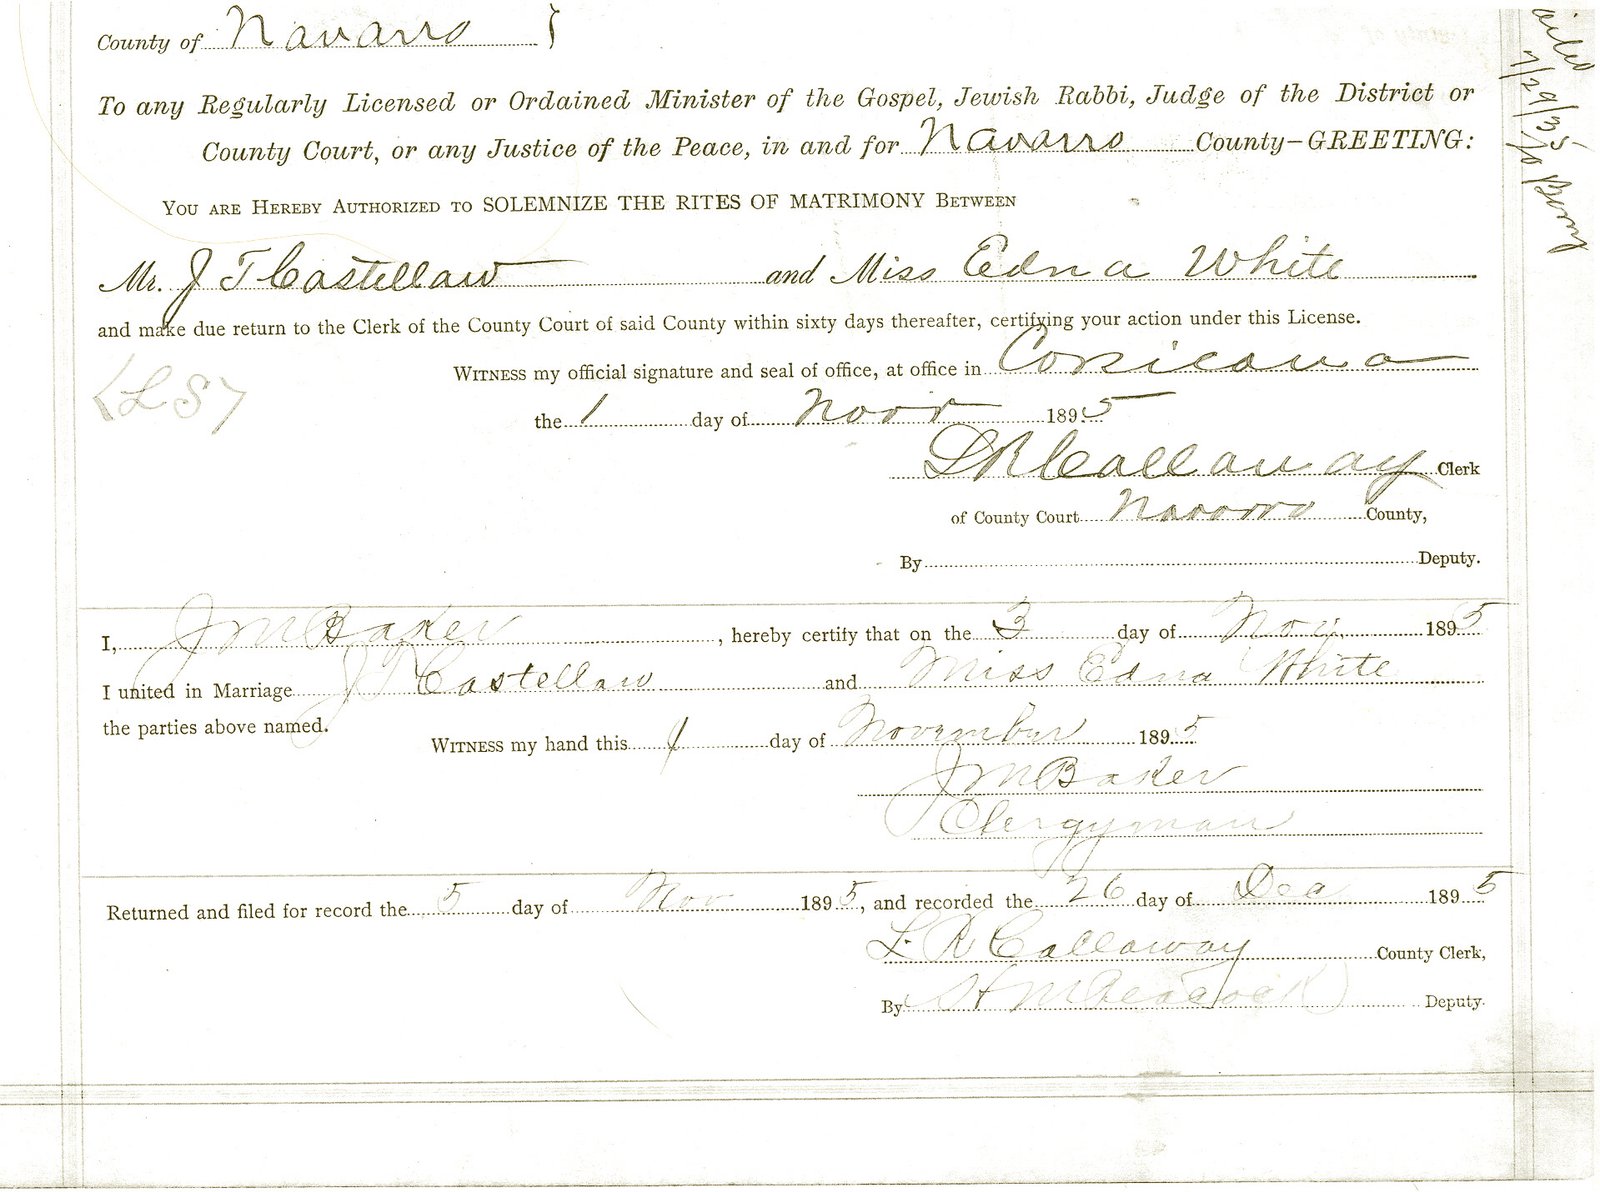 County of Navarro
To any Regularly Licensed or Ordained Minister of the Gospel, Jewish Rabbi, Judge of the District or
County Court, or any Justice of the Peace, in and for Navarro County-GREETING:
You are Hereby Authorized to SOLEMNIZE THE RITES OF MATRIMONY Between
Mr. J T Castellaw and Miss Edna White
and make due return to the Clerk of the County Court of said County within sixty days thereafter, certifying your action under this License.
Witness my official signature and seal of office, at office in Corsicana
(LS)
the 1 day of Novr 1895
L R Callaway Clerk
of County Court Navarro County,
By Deputy.
I, J M Baker, hereby certify that on the 3 day of Nov. 1895
I united in Marriage J T Castellaw and Miss Edna White
the parties above named.
Witness my hand this day of November 1895
J M Baker
Clergyman
Returned and filed for record the 5 day of Nov 1895, and recorded the 26 day of Dec 1895
L. R Callaway County Clerk,
By H M Peacock Deputy.
7/29/35 to